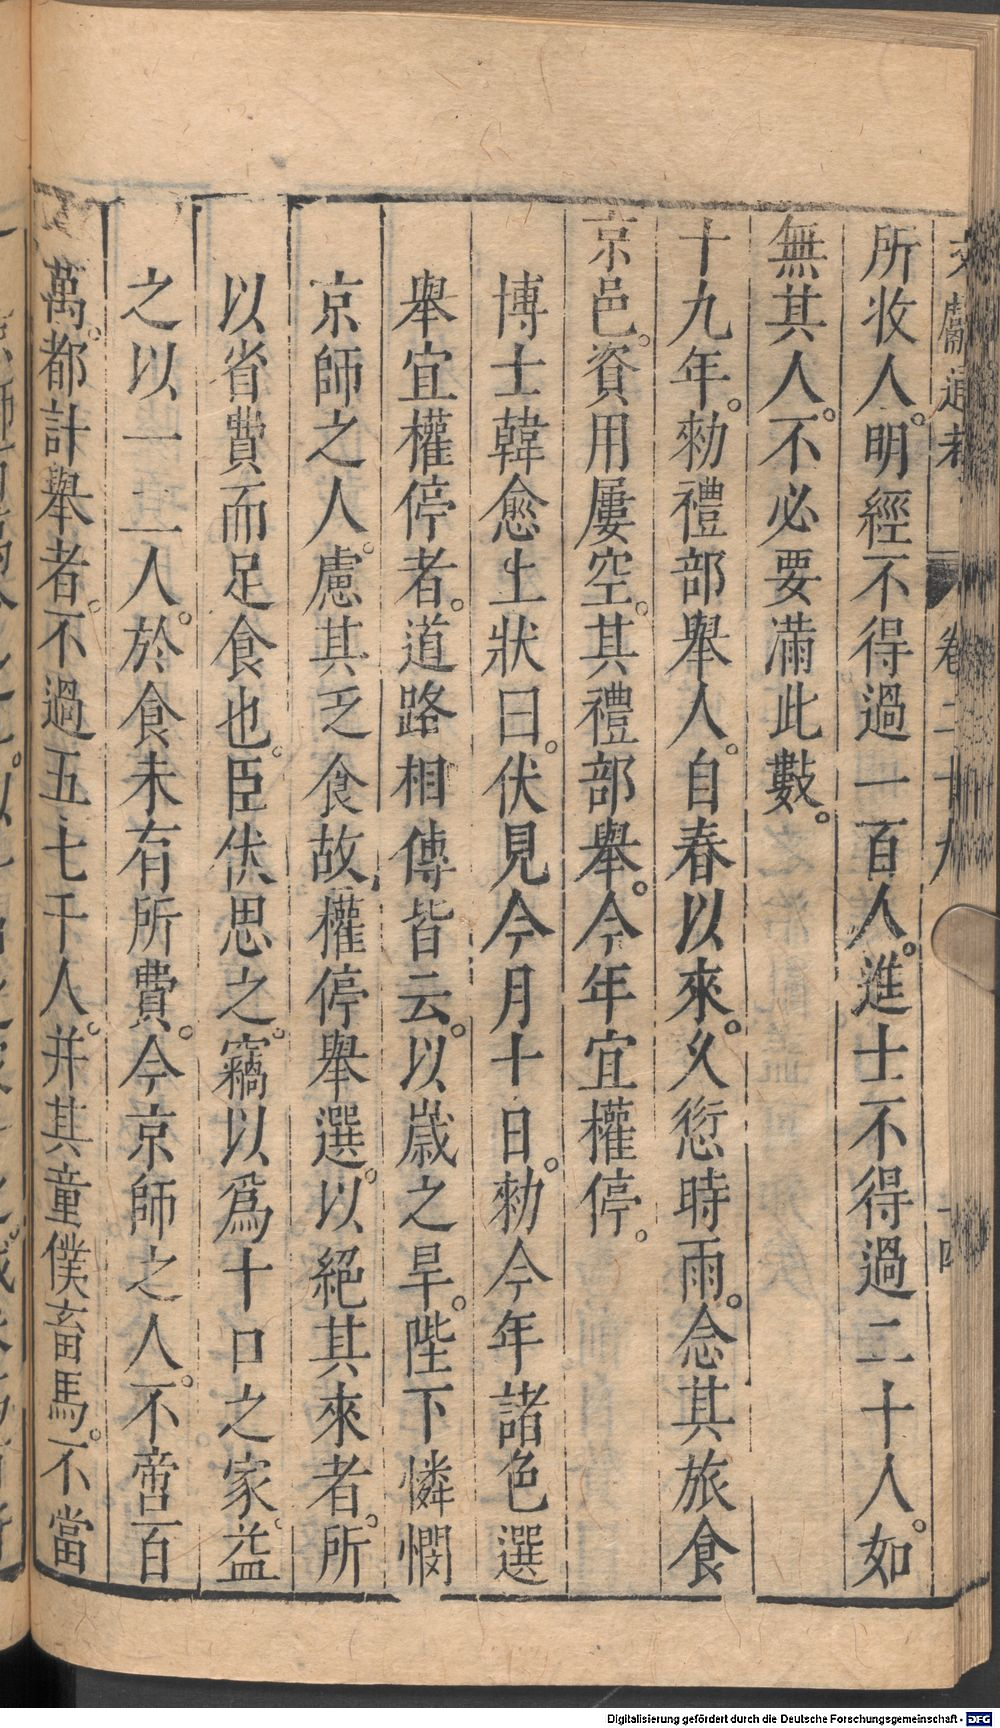 文獻通考 卷二十九 十四
所收人明經不得過一百人進士不得過二十人如
無其人不必要滿此數
十九年勑禮部舉人自春以來久愆時雨念其旅食
京邑資用屢空其禮部舉今年宜權停
博士韓愈上狀曰伏見今月十日勑今年諸色選
舉宜權停者道路相傳皆云以歲之旱陛下憐憫
京師之人慮其乏食故權停舉選以絕其來者所
以省費而足食也臣伏思之竊以爲十口之家益
之以一二人於食未有所費今京師之人不啻百
萬都計舉者不過五七千人并其童僕畜馬不當
Digitalisierung gefördert durch die Deutsche Forschungsgemeinschaft - DFG